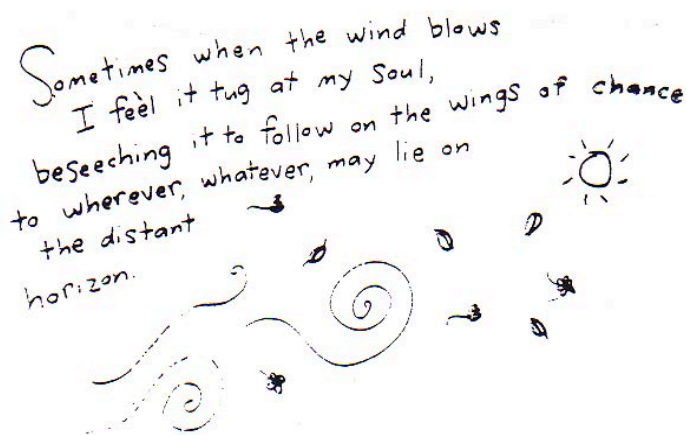 Sometimes when the wind blows
I feel it tug at my Soul,
beseeching it to follow on the wings of chance
to wherever, whatever, may lie on
the distant
horizon.